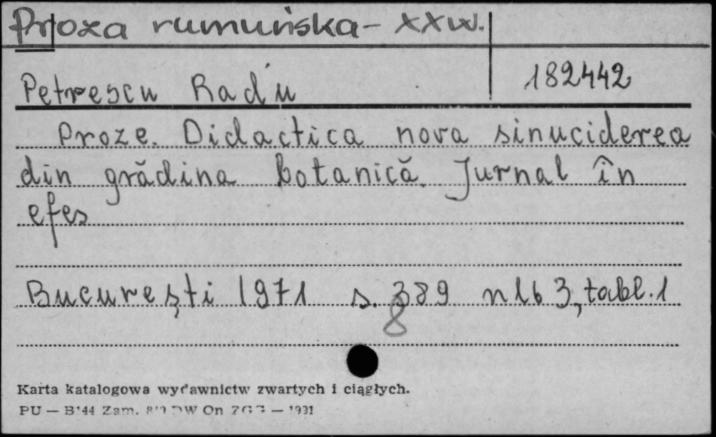 Proza rumuńska - XXw.
Petrescu Radu 182442
Proze. Didactica nova sinuciderea
din grădina botanică. Jurnal în
efes
București 1971 s. 389 nlb 3, tabl. 1
8
Karta katalogowa wydawnictw zwartych i ciągłych.
PU — B'44 Zam. DW On ZGG —